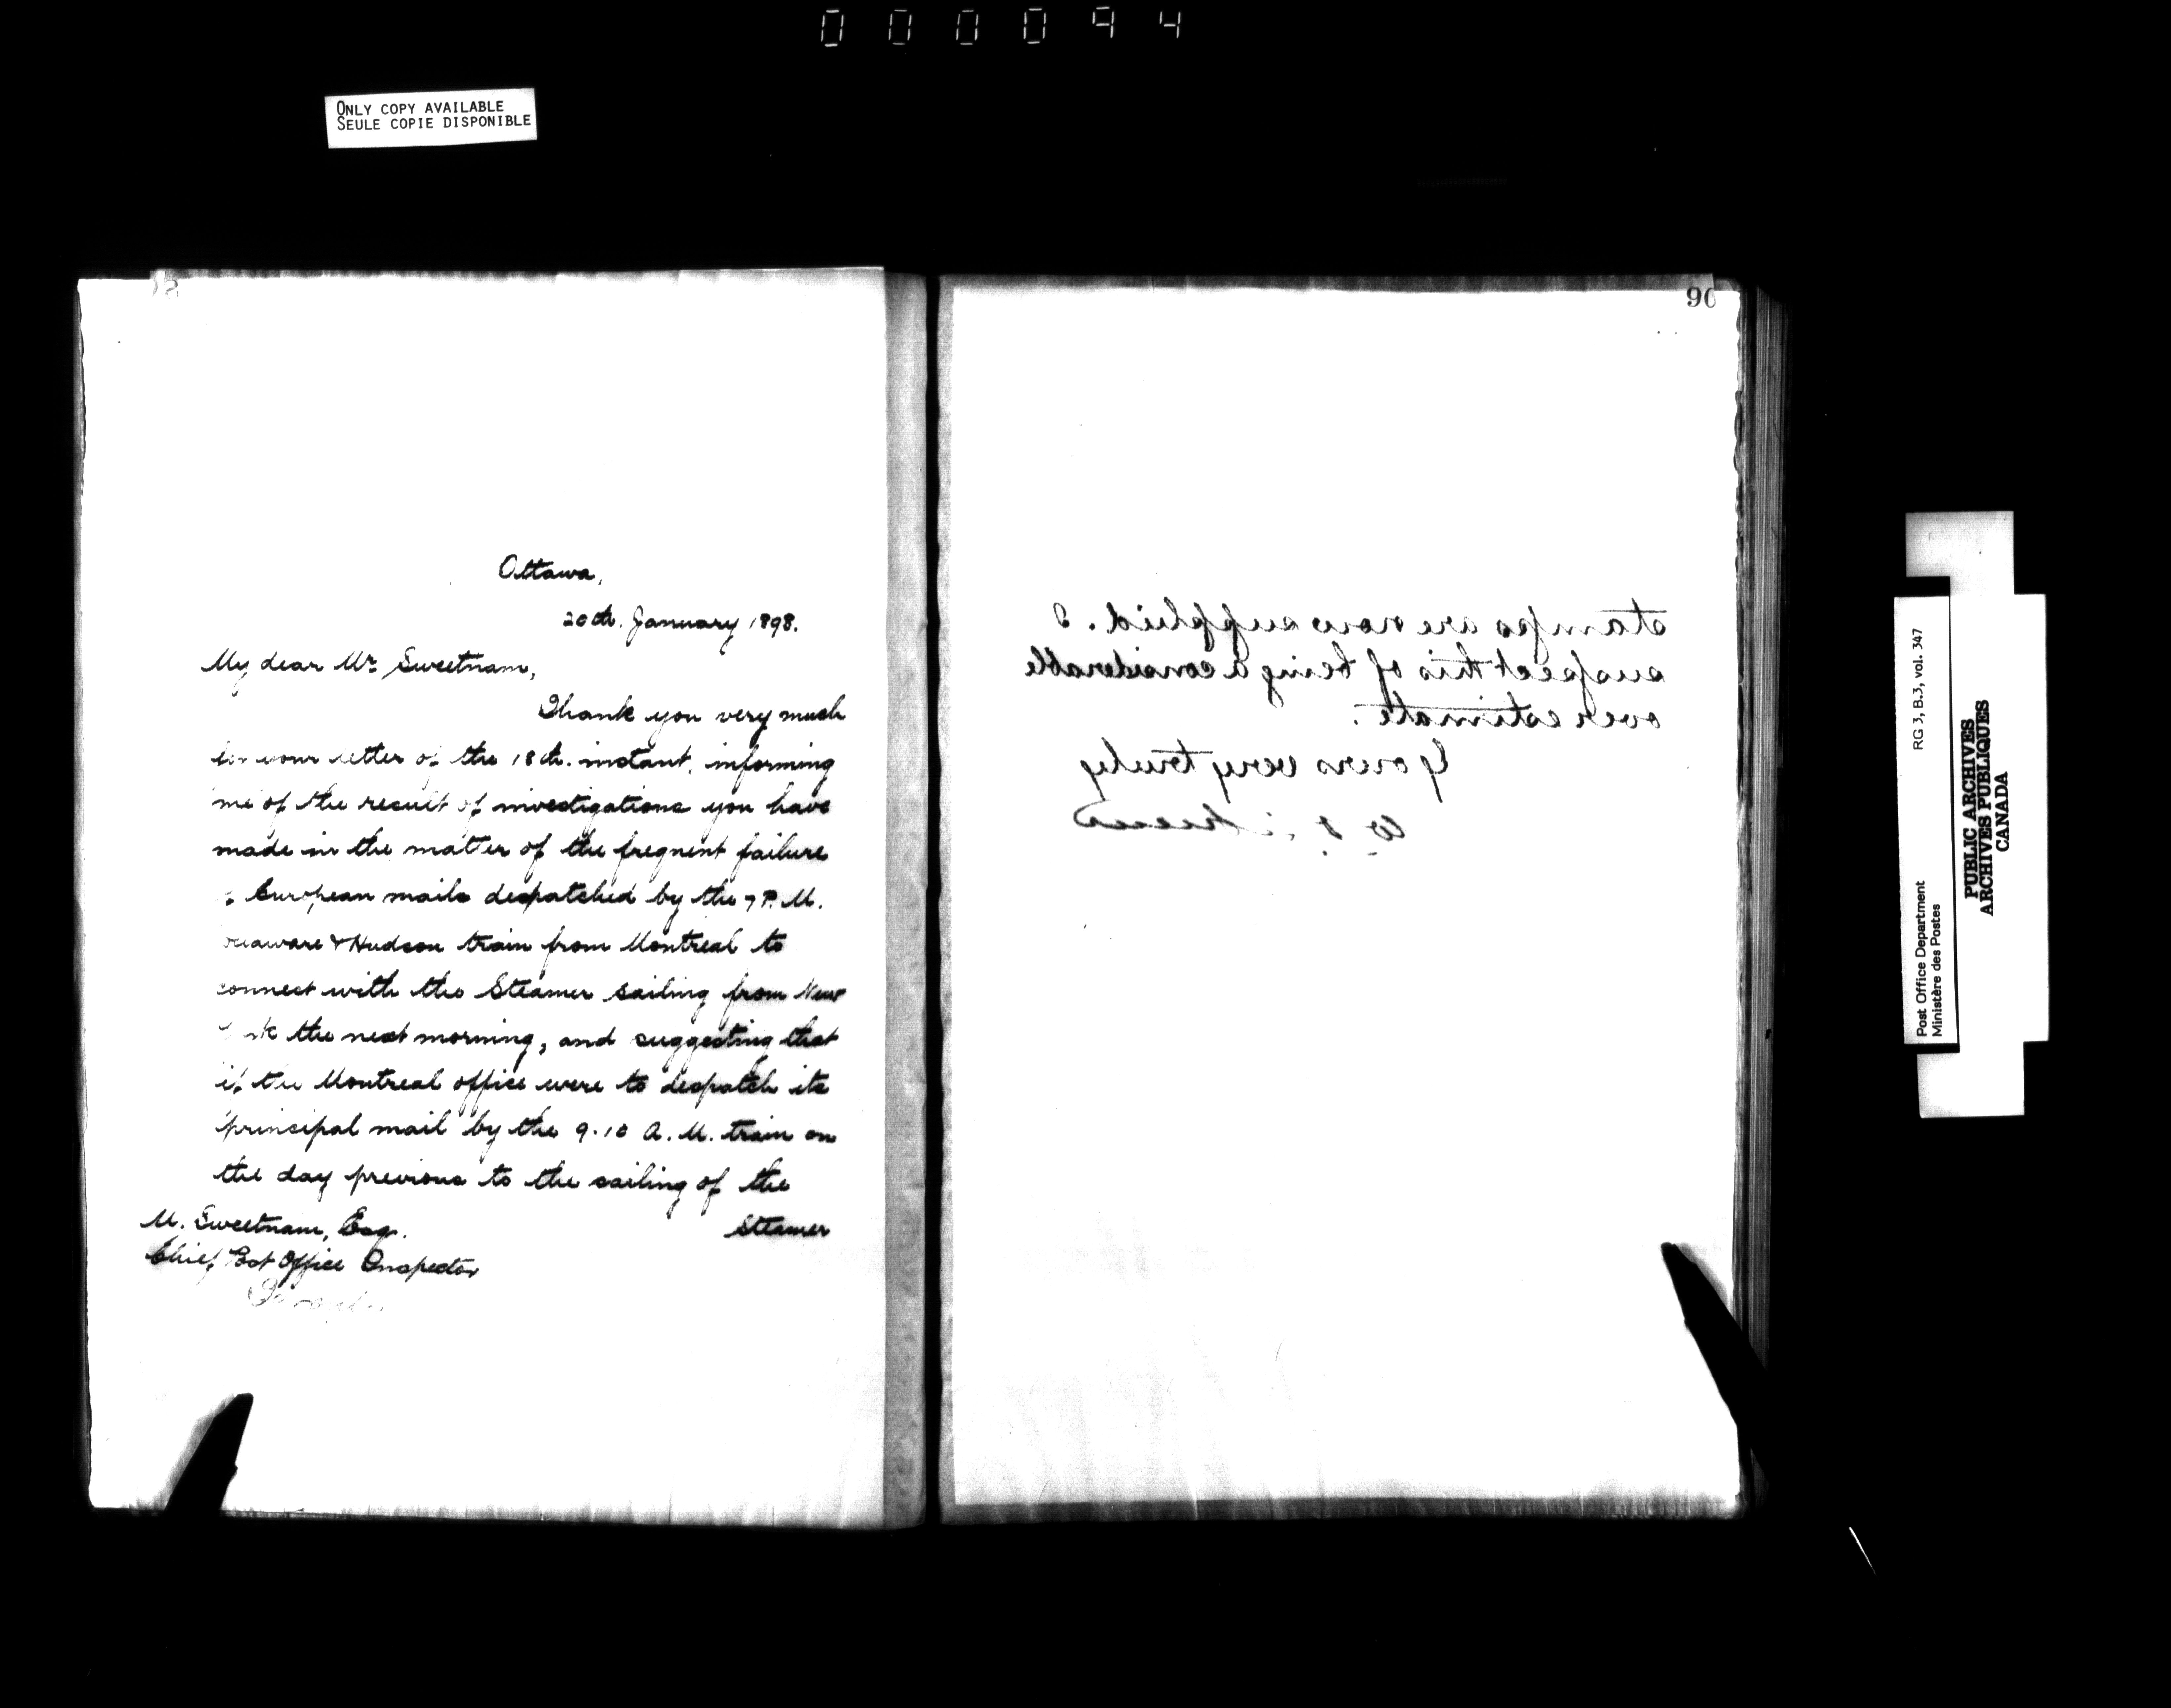 000094
ONLY COPY AVAILABLE
SEULE COPIE DISPONIBLE
Ottawa,
20th. January 1898.
My dear Mr. Sweetnam,
Thank you very much
for your letter of the 18th. instant, informing
me of the result of investigations you have
made in the matter of the frequent failure
European mails despatched by the 7 P. M.
Delaware & Hudson train from Montreal to
connect with the Steamer sailing from New
York the next morning, and suggesting that
if the Montreal office were to despatch its
principal mail by the 9.10 A. M. train on
the day previous to the sailing of the
steamer
M. Sweetnam, Esq.
Chief Post Office Inspector
90
stamps are now supplied. I
suspect this of being a considerable
over estimate.
Yours very truly
W.
RG 3, B.3, vol. 347
Post Office Department
Ministère des Postes
PUBLIC ARCHIVES
ARCHIVES PUBLIQUES
CANADA